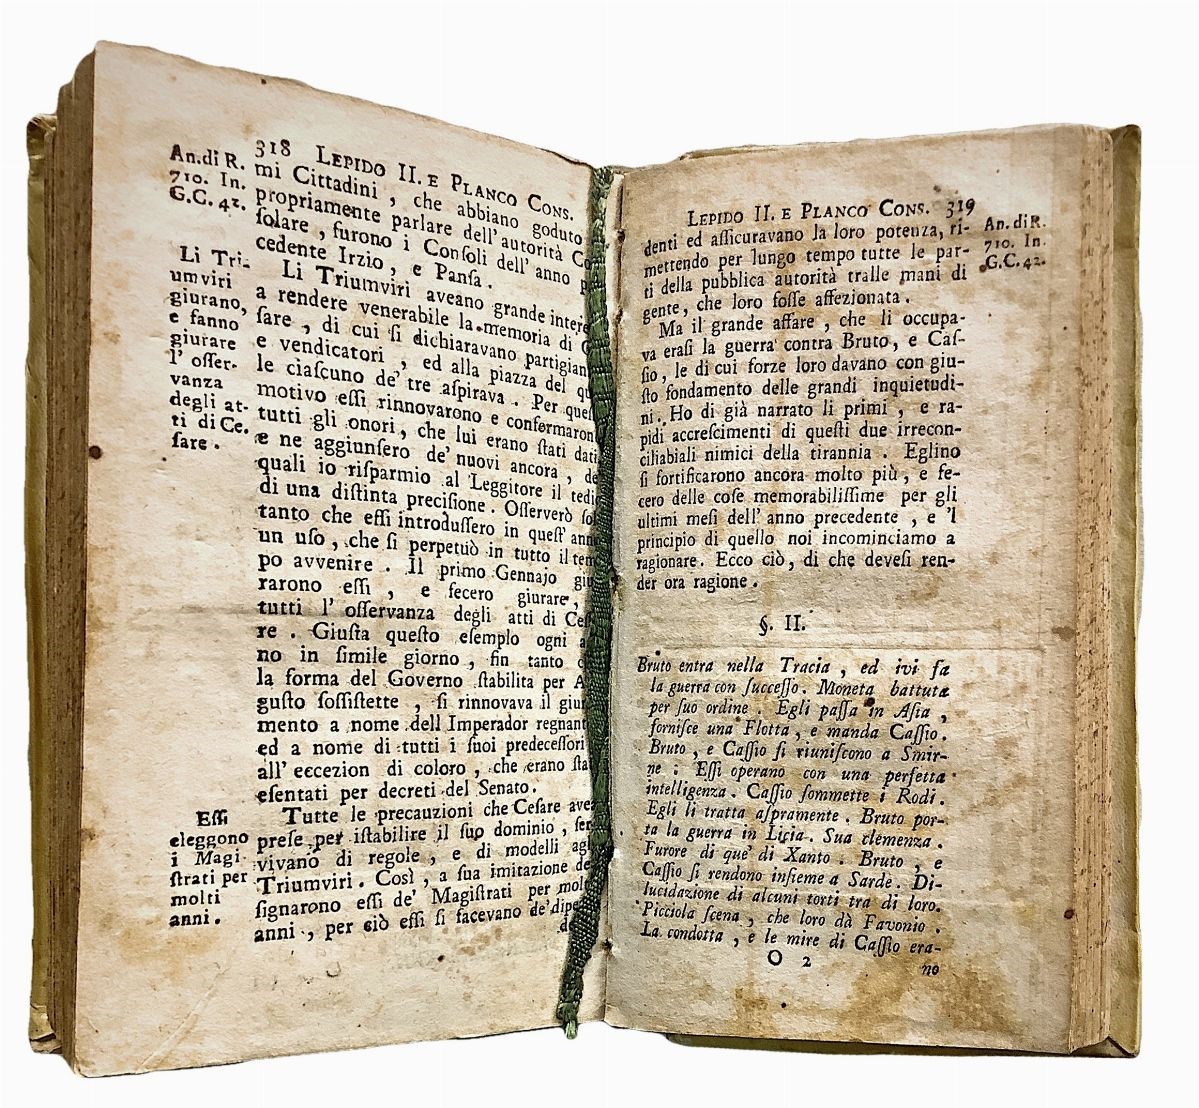 318 LEPIDO II. E PLANCO CONS.
An. di R.
710. In.
G.C. 42.
mi Cittadini, che abbiano goduto
propriamente parlare dell'autorità Co
ſolare, furono i Conſoli dell'anno p
cedente Irzio, e Panſa.
Li Tri-
umviri
giurano,
e fanno
giurare
l' oſſer-
vanza
degli at-
ti di Ce-
ſare.
Li Triumviri aveano grande intere
a rendere venerabile la memoria di C
ſare, di cui ſi dichiaravano partigian
e vendicatori, ed alla piazza del qu
le ciaſcuno de' tre aſpirava. Per queſ
motivo eſſi rinnovarono e confermaron
tutti gli onori, che lui erano ſtati dati
e ne aggiunſero de' nuovi ancora, de
quali io riſparmio al Leggitore il tedi
di una diſtinta preciſione. Oſſerverò ſol
tanto che eſſi introduſſero in queſt' ann
un uſo, che ſi perpetuò in tutto il tem
po avvenire. Il primo Gennajo giu
rarono eſſi, e fecero giurare,
tutti l' oſſervanza degli atti di Ceſ
re. Giuſta queſto eſemplo ogni a
no in ſimile giorno, fin tanto c
la forma del Governo ſtabilita per A
guſto ſoſſiſtette, ſi rinnovava il giur
mento a nome dell Imperador regnant
ed a nome di tutti i ſuoi predeceſſori
all' eccezion di coloro, che erano ſtat
eſentati per decreti del Senato.
Eſſi
eleggono
i Magi-
ſtrati per
molti
anni.
Tutte le precauzioni che Ceſare ave
preſe per iſtabilire il ſuo dominio, ſer
vivano di regole, e di modelli agl
Triumviri. Così, a ſua imitazione de
ſignarono eſſi de' Magiſtrati per molt
anni, per ciò eſſi ſi facevano de' dipe
de
LEPIDO II. E PLANCO CONS. 319
An. di R.
710. In.
G.C. 42.
denti ed aſſicuravano la loro potenza, ri-
mettendo per lungo tempo tutte le par-
ti della pubblica autorità tralle mani di
gente, che loro foſſe affezionata.
Ma il grande affare, che li occupa-
va eraſi la guerra contra Bruto, e Caſ-
ſio, le di cui forze loro davano con giu-
ſto fondamento delle grandi inquietudi-
ni. Ho di già narrato li primi, e ra-
pidi accreſcimenti di queſti due irrecon-
ciliabiali nimici della tirannia. Eglino
ſi fortificarono ancora molto più, e fe-
cero delle coſe memorabiliſſime per gli
ultimi meſi dell' anno precedente, e 'l
principio di quello noi incominciamo a
ragionare. Ecco ciò, di che deveſi ren-
der ora ragione.
§. II.
Bruto entra nella Tracia, ed ivi fa
la guerra con ſucceſſo. Moneta battuta
per ſuo ordine. Egli paſſa in Aſia,
forniſce una Flotta, e manda Caſſio.
Bruto, e Caſſio ſi riuniſcono a Smir-
ne: Eſſi operano con una perfetta
intelligenza. Caſſio ſommette i Rodi.
Egli li tratta aſpramente. Bruto por-
ta la guerra in Licia. Sua clemenza.
Furore di que' di Xanto. Bruto, e
Caſſio ſi rendono inſieme a Sarde. Di-
lucidazione di alcuni torti tra di loro.
Picciola ſcena, che loro dà Favonio.
La condotta, e le mire di Caſſio era-
O 2
no